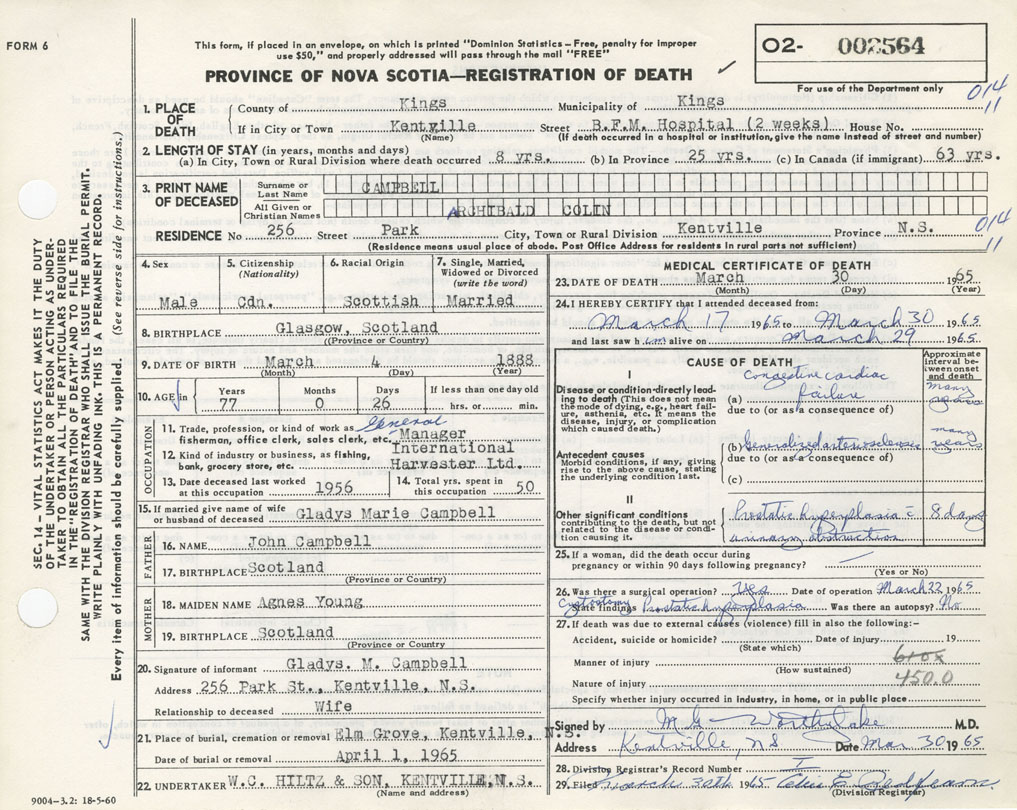 FORM 6
This form, if placed in an envelope, on which is printed "Dominion Statistics—Free, penalty for improper
use $50," and properly addressed will pass through the mail "FREE"
PROVINCE OF NOVA SCOTIA—REGISTRATION OF DEATH
O2- 002564
For use of the Department only
014
11
1. PLACE OF DEATH
County of Kings Municipality of Kings
If in City or Town Kentville Street B.F.M. Hospital (2 weeks) House No.
(Name) (If death occurred in a hospital or institution, give the name instead of street and number)
2. LENGTH OF STAY (in years, months and days)
(a) In City, Town or Rural Division where death occurred 8 yrs. (b) In Province 25 yrs. (c) In Canada (if immigrant) 63 yrs.
3. PRINT NAME OF DECEASED
Surname or Last Name CAMPBELL
All Given or Christian Names ARCHIBALD COLIN
RESIDENCE No 256 Street Park City, Town or Rural Division Kentville Province N.S.
(Residence means usual place of abode. Post Office Address for residents in rural parts not sufficient)
014
11
4. Sex
Male
5. Citizenship
(Nationality)
Cdn.
6. Racial Origin
Scottish
7. Single, Married, Widowed or Divorced
(write the word)
Married
8. BIRTHPLACE Glasgow, Scotland
((Province or Country)
9. DATE OF BIRTH March 4 1888
(Month) (Day) (Year)
10. AGE in
Years Months Days If less than one day old
77 0 26 hrs. or min.
OCCUPATION
11. Trade, profession, or kind of work as General
fisherman, office clerk, sales clerk, etc. Manager
12. Kind of industry or business, as fishing, International
bank, grocery store, etc. Harvester Ltd.
13. Date deceased last worked at this occupation 1956
14. Total yrs. spent in this occupation 50
15. If married give name of wife or husband of deceased Gladys Marie Campbell
FATHER
16. NAME John Campbell
17. BIRTHPLACE Scotland
(Province or Country)
MOTHER
18. MAIDEN NAME Agnes Young
19. BIRTHPLACE Scotland
(Province or Country)
20. Signature of informant Gladys. M. Campbell
Address 256 Park St., Kentville, N.S.
Relationship to deceased Wife
21. Place of burial, cremation or removal Elm Grove, Kentville, N.S.
Date of burial or removal April 1, 1965
22. UNDERTAKER W.C. HILTZ & SON, KENTVILLE, N.S.
(Name and address)
MEDICAL CERTIFICATE OF DEATH
23. DATE OF DEATH March 30 1965
(Month) (Day) (Year)
24. I HEREBY CERTIFY that I attended deceased from:
March 17 1965 to March 30 1965
and last saw him alive on March 29 1965.
CAUSE OF DEATH
Approximate interval between onset and death
I
Disease or condition directly leading to death (This does not mean the mode of dying, e.g., heart failure, asthenia, etc. It means the disease, injury, or complication which caused death.)
(a) Congestive cardiac failure
many years
due to (or as a consequence of)
Antecedent causes
Morbid conditions, if any, giving rise to the above cause, stating the underlying condition last.
(b) Generalized arteriosclerosis
many years
due to (or as a consequence of)
(c)
II
Other significant conditions
contributing to the death, but not related to the disease or condition causing it.
Prostatic hyperplasia c̄ 8 days
urinary obstruction
25. If a woman, did the death occur during
pregnancy or within 90 days following pregnancy?
(Yes or No)
26. Was there a surgical operation? Yes Date of operation March 22 1965
Cystostomy
State findings Prostatic hyperplasia Was there an autopsy? No
27. If death was due to external causes (violence) fill in also the following:—
Accident, suicide or homicide? Date of injury 19
(State which)
Manner of injury 610X
(How sustained)
Nature of injury 450.0
Specify whether injury occurred in industry, in home, or in public place
Signed by M.D.
Address Kentville, NS Date Mar 30 1965
28. Division Registrar's Record Number
29. Filed March 30th 1965
(Division Registrar)
SEC. 14 – VITAL STATISTICS ACT MAKES IT THE DUTY
OF THE UNDERTAKER OR PERSON ACTING AS UNDER-
TAKER TO OBTAIN ALL THE PARTICULARS REQUIRED
IN THE "REGISTRATION OF DEATH" AND TO FILE THE
SAME WITH THE DIVISION REGISTRAR WHO SHALL ISSUE THE BURIAL PERMIT.
WRITE PLAINLY WITH UNFADING INK. THIS IS A PERMANENT RECORD.
Every item of information should be carefully supplied. (See reverse side for instructions.)
9004-3.2: 18-5-60